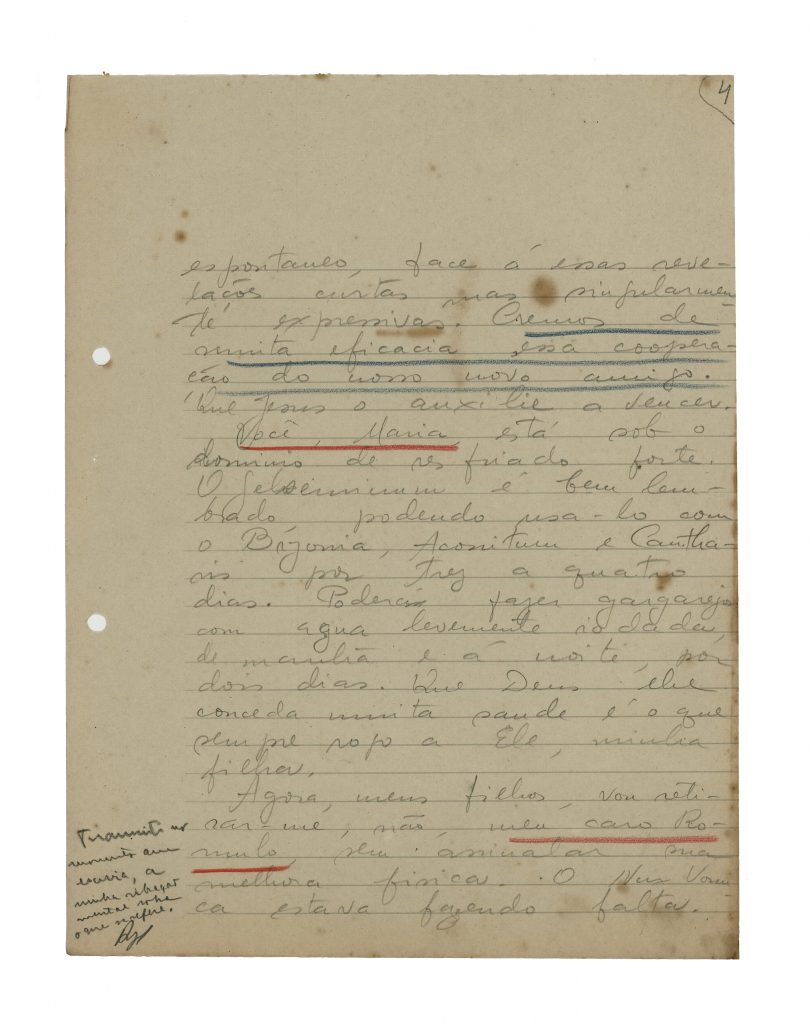 4
espontaneo, face á essas reve-
lações curtas mas singularmen
te expressivas. Cremos de
muita eficacia essa coopera-
ção do nosso novo amigo.
Que Jesus o auxilie a vencer.
Você, Maria, está sob o
dominio de resfriado forte.
O Gelseminum é bem lem-
brado, podendo usa-lo com
o Brýonia, Aconitum e Cantha-
ris por trez a quatro
dias. Poderá fazer gargarejo
com agua levemente iodada,
de manhã e á noite, por
dois dias. Que Deus lhe
conceda muita saude é o que
sempre rogo a Ele, minha
filha.
Agora, meus filhos, vou reti-
rar-me, não, meu caro Ro-
mulo, sem assinalar sua
melhora fisica. O Nux Vomi
ca estava fazendo falta.
momento em
escrevia, a
minha
mental sobre
o que se refere.